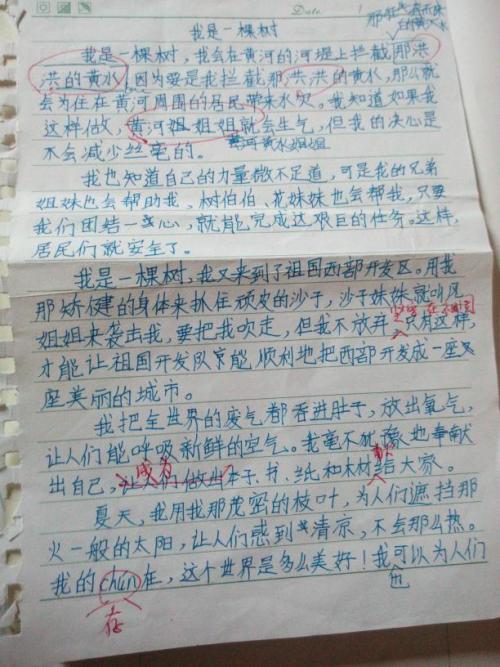 Date
我是一棵树
我是一棵树，我会在黄河的河堤上拦截那洪
洪的黄水，因为要是我拦截那洪洪的黄水，那么就
会为住在黄河周围的居民带来水灾。我知道如果我
这样做，黄河姐姐姐就会生气，但我的决心是
不会减少丝毫的。黄河黄水姐姐
我也知道自己的力量微不足道，可是我的兄弟
姐妹也会帮助我，树伯伯、花妹妹也会帮我，只要
我们团结一心，就能完成这艰巨的任务。这样，
居民们就安全了。
我是一棵树，我又来到了祖国西部开发区。用我
那矫健的身体来扒住顽皮的沙子，沙子妹妹就叫风
姐姐来袭击我，要把我吹走，但我不放弃，只有这样，
才能让祖国开发队员能顺利地把西部开发成一座又
座美丽的城市。
我把全世界的废气都吞进肚子，放出氧气，
让人们能呼吸新鲜的空气。我毫不犹豫地奉献
出自己，让人们做出本子、书、纸和木材给大家。
成为
献
夏天，我用我那茂密的枝叶，为人们遮挡那
火一般的太阳，让人们感到清凉，不会那么热。
我的chún在，这个世界是多么美好！我可以为人们
也
存